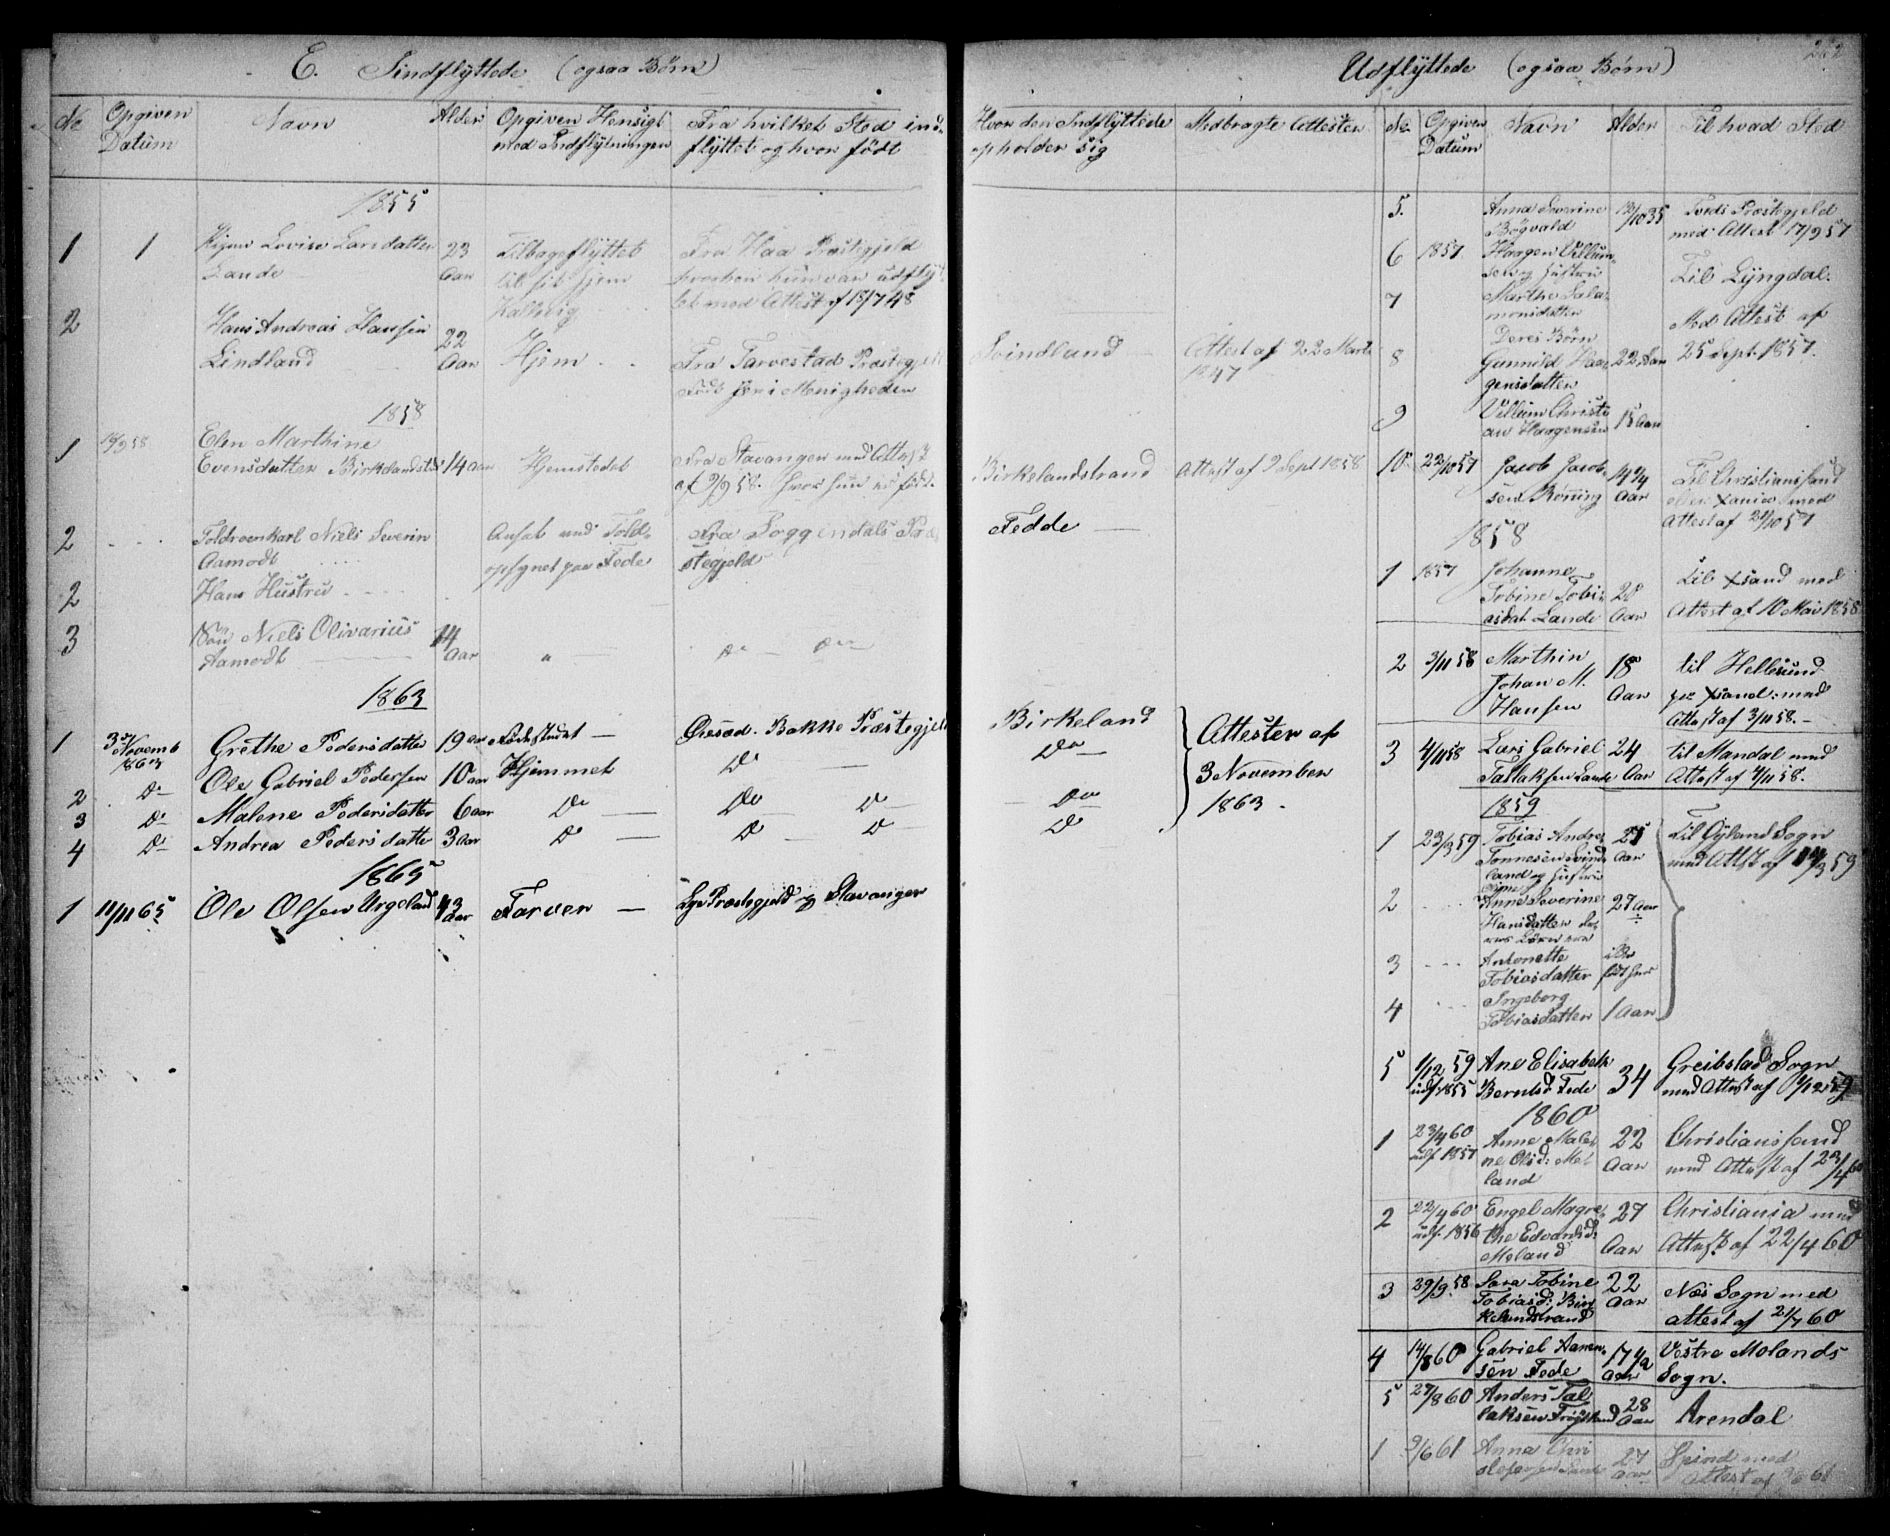 E. Indflyttede (ogsaa Børn)
No
Opgiven Datum
Navn
Alder
Opgiven Hensigt med Indflytningen
Fra hvilket Sted ind-
flyttet og hvor födt
Hvor den Indflyttede
opholder sig
Medbragte Attester
1855
1 1 Lovise Larsdatter
Lande
23
Aar
Tilbageflyttet
til sit Hjem
Fra Haa Præstegjeld
hvorhen hun var udflyt
tet med Attest af 18/7 48
2
Hans Andreas Hansen
Lindland
22
Aar
Hjem
Fra Tarvestad Præstegjeld
Født her i Menigheden
Svindland
Attest af 22 Marts
1847
1858
1
Elen Marthine
Evensdatter Birkelandstrd
14 aar
Hjemstedet
Fra Stavanger med Attest
af 2/9 58. hvor hun er født.
Birkelandstrand
Attest af 2 Sept 1858
2
Toldroerkarl Niels Severin
Aamodt
Ansat ved Told-
opsynet paa Fede
Fra Soggendals Præ
stegjeld
Fedde
2
Hans Hustru
3
Søn Niels Olivarius
Aamodt
14
Aar
1863
1 3die Novemb
1863
Grethe Pedersdatter
19 aar
Fødestedet
Øiesad. Bakke Præstegjeld
Birkeland
Do
Attester af
3 November
1863.
2 Do Ole Gabriel Pedersen 10 aar Hjemmet Do
3 Do Malene Pedersdatter 6 aar Do Do Do Do
4 Do Andrea Pedersdatter 3 aar Do Do Do Do
1865
1 11/11 65 Ole Olsen Urgeland 43
Aar
Farver
Lye Præstegjeld og Stavanger
Udflyttede (ogsaa Børn)
262
No.
Opgiven
Datum
Navn
Alder
Til hvad Sted
5.
Anna Severine
Bögvald
13/10 35
Tveds Præstegjeld
med Attest 17/9 57
6 1857
Haagen Villum-
sen og Hustru
Til Lyngdal.
7
Marthe Salo-
monsdatter
Deres Børn
Med Attest af
25 Sept. 1857.
8
Gunnild Haa-
gensdatter
22 Aar
9
Villum Christi
an Haagensen
15 Aar
10 22/10 57
Jacob Jacob-
sen Rönning
14 3/4
Aar
Til Christianssand
med
Attest af 21/10 57
1858
1 1857
Johanne
Tobine Tobi-
asdat. Lande
20
Aar
Til Xsand med
Attest af 10 Mai 1858
2 3/11 58
Marthin
Johan M.
Hansen
18
Aar
til Hellesund
pr Xsand med
Attest af 3/11 58.
3 4/11 58
Lars Gabriel
Tallaksen Lande
24
Aar
til Mandal med
Attest af 4/11 58.
1859
1 23/3 59
Tobias Andre-
Tönnesen Svind-
land og Hustru
25
Aar
Til Gyland Sogn
med Attest af 14/3 59
2
Anne Severine
Hansdatter de-
res Børn
27 Aar
3
Antonette
Tobiasdatter
født her
4
Ingeborg
Tobiasdatter
1 Aar
5 1/12 59
udf. 1855
Ane Elisabeth
Berntsd Fede
34
Greibstad Sogn
med Attest af 1/12 59
1860
1 23/4 60
udf 1857
Anne Male-
ne Olsd: Me-
land
22
Aar
Christianssand
med Attest af 23/4 60
2 22/4 60
udf. 1856
Engel Magre-
the Edvardsd:
Meland
27
Aar
Christiania med
Attest af 22/4 60
3 29/9.58
Sara Tobine
Tobiasd: Bir
kelandstrand
22
Aar
Næs Sogn med
Attest af 21/7 60
4 14/8 60
Gabriel Aanen-
sen Fede
17 1/2
Aar
Vestre Molands
Sogn.
5 27/8 60
Anders Tal
laksen
28
Aar
Arendal
1 9/6 61
Anna Chri
27
Aar
Spind med
Attest af